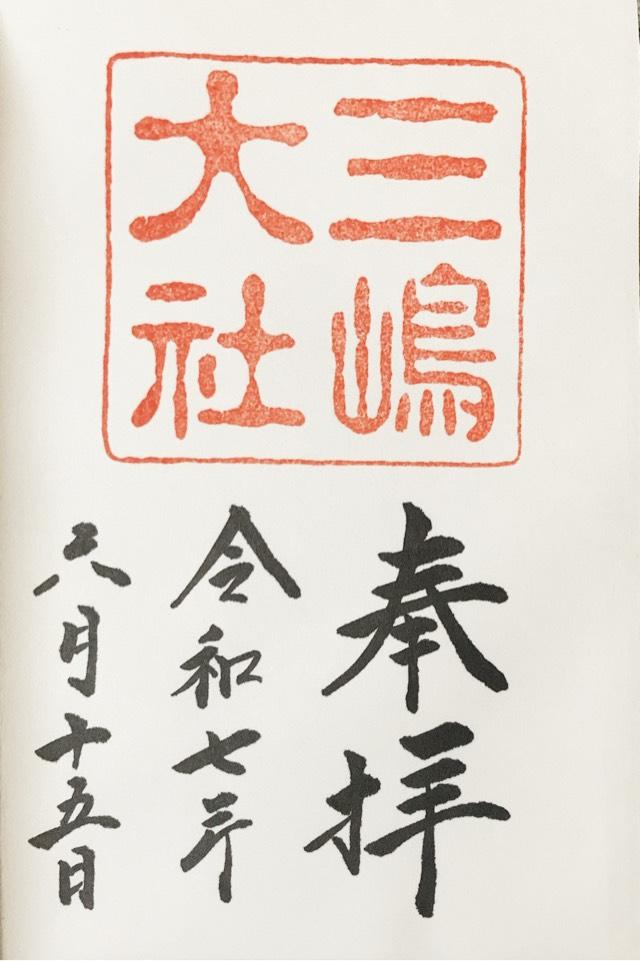 三嶋
大社
奉拝
令和七年
六月十五日